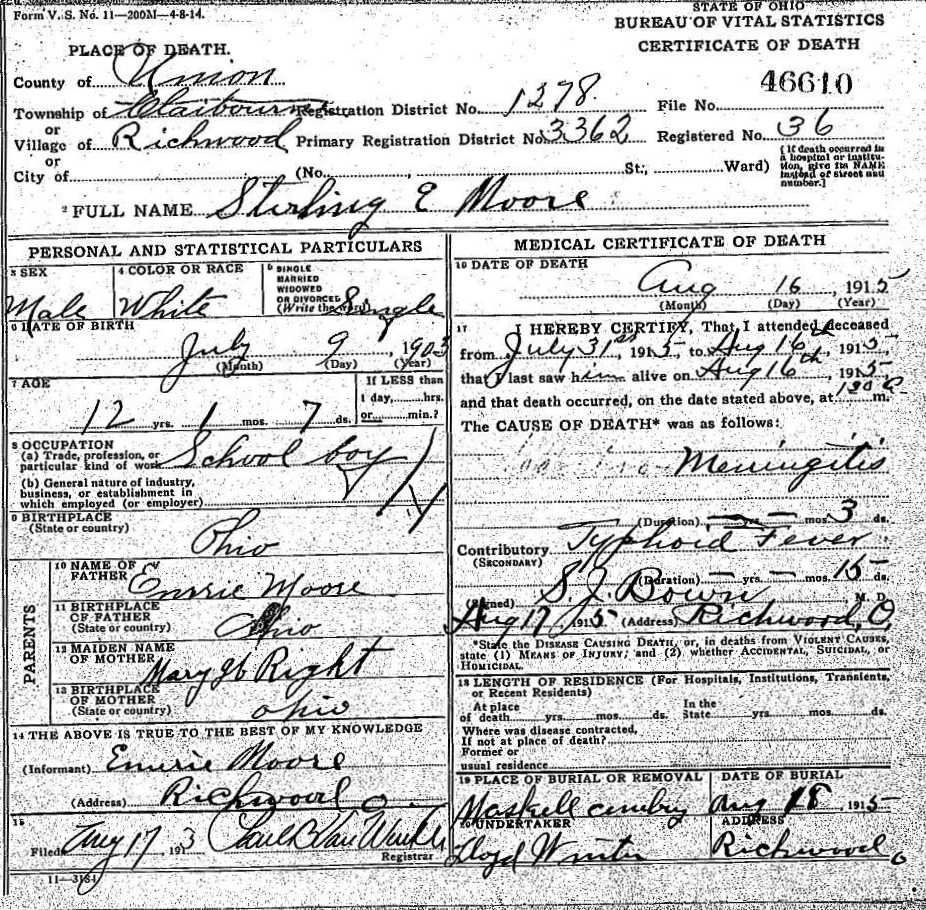 Form V. S. No. 11—200M—4-8-14.
STATE OF OHIO
BUREAU OF VITAL STATISTICS
CERTIFICATE OF DEATH
PLACE OF DEATH.
County of Union
Township of Claibourne Registration District No. 1278 File No. 46610
or
Village of Richwood Primary Registration District No. 3362 Registered No. 36
or
City of (No. , St; Ward)
(If death occurred in a hospital or institution, give its NAME instead of street and number.]
2 FULL NAME Stirling E Moore
PERSONAL AND STATISTICAL PARTICULARS
3 SEX
Male
4 COLOR OR RACE
White
5 SINGLE
MARRIED
WIDOWED
OR DIVORCED
(Write the word) Single
6 DATE OF BIRTH
July 9, 1903
(Month) (Day) (Year)
7 AGE
12 yrs. 1 mos. 7 ds.
If LESS than
1 day, hrs.
or min.?
8 OCCUPATION
(a) Trade, profession, or
particular kind of work School boy
(b) General nature of industry,
business, or establishment in
which employed (or employer)
9 BIRTHPLACE
(State or country)
Ohio
PARENTS
10 NAME OF
FATHER Moore
11 BIRTHPLACE
OF FATHER
(State or country) Ohio
12 MAIDEN NAME
OF MOTHER
Mary Right
13 BIRTHPLACE
OF MOTHER
(State or country) Ohio
14 THE ABOVE IS TRUE TO THE BEST OF MY KNOWLEDGE
(Informant) Emirie Moore
(Address) Richwood O.
15
Filed Aug 17 1913
Registrar
11—3184
MEDICAL CERTIFICATE OF DEATH
16 DATE OF DEATH
Aug 16, 1915
(Month) (Day) (Year)
17 I HEREBY CERTIFY, That I attended deceased
from July 31st, 1915, to Aug 16th, 1915
that I last saw him alive on Aug 16th, 1915
and that death occurred, on the date stated above, at m.
The CAUSE OF DEATH* was as follows:
Meningitis
(Duration) yrs. — mos. 3 ds.
Contributory Typhoid Fever
(SECONDARY)
(Duration) — yrs. — mos. 15 ds.
(Signed) S. J. Bown M. D.
Aug 17, 1915 (Address) Richwood, O.
*State the DISEASE CAUSING DEATH, or, in deaths from VIOLENT CAUSES,
state (1) MEANS OF INJURY; and (2) whether ACCIDENTAL, SUICIDAL, or
HOMICIDAL.
18 LENGTH OF RESIDENCE (For Hospitals, Institutions, Transients,
or Recent Residents)
At place
of death yrs. mos. ds.
In the
State yrs. mos. ds.
Where was disease contracted,
If not at place of death?
Former or
usual residence
19 PLACE OF BURIAL OR REMOVAL
DATE OF BURIAL
Aug 18, 1915
20 UNDERTAKER
Lloyd Winter
ADDRESS
Richwood O